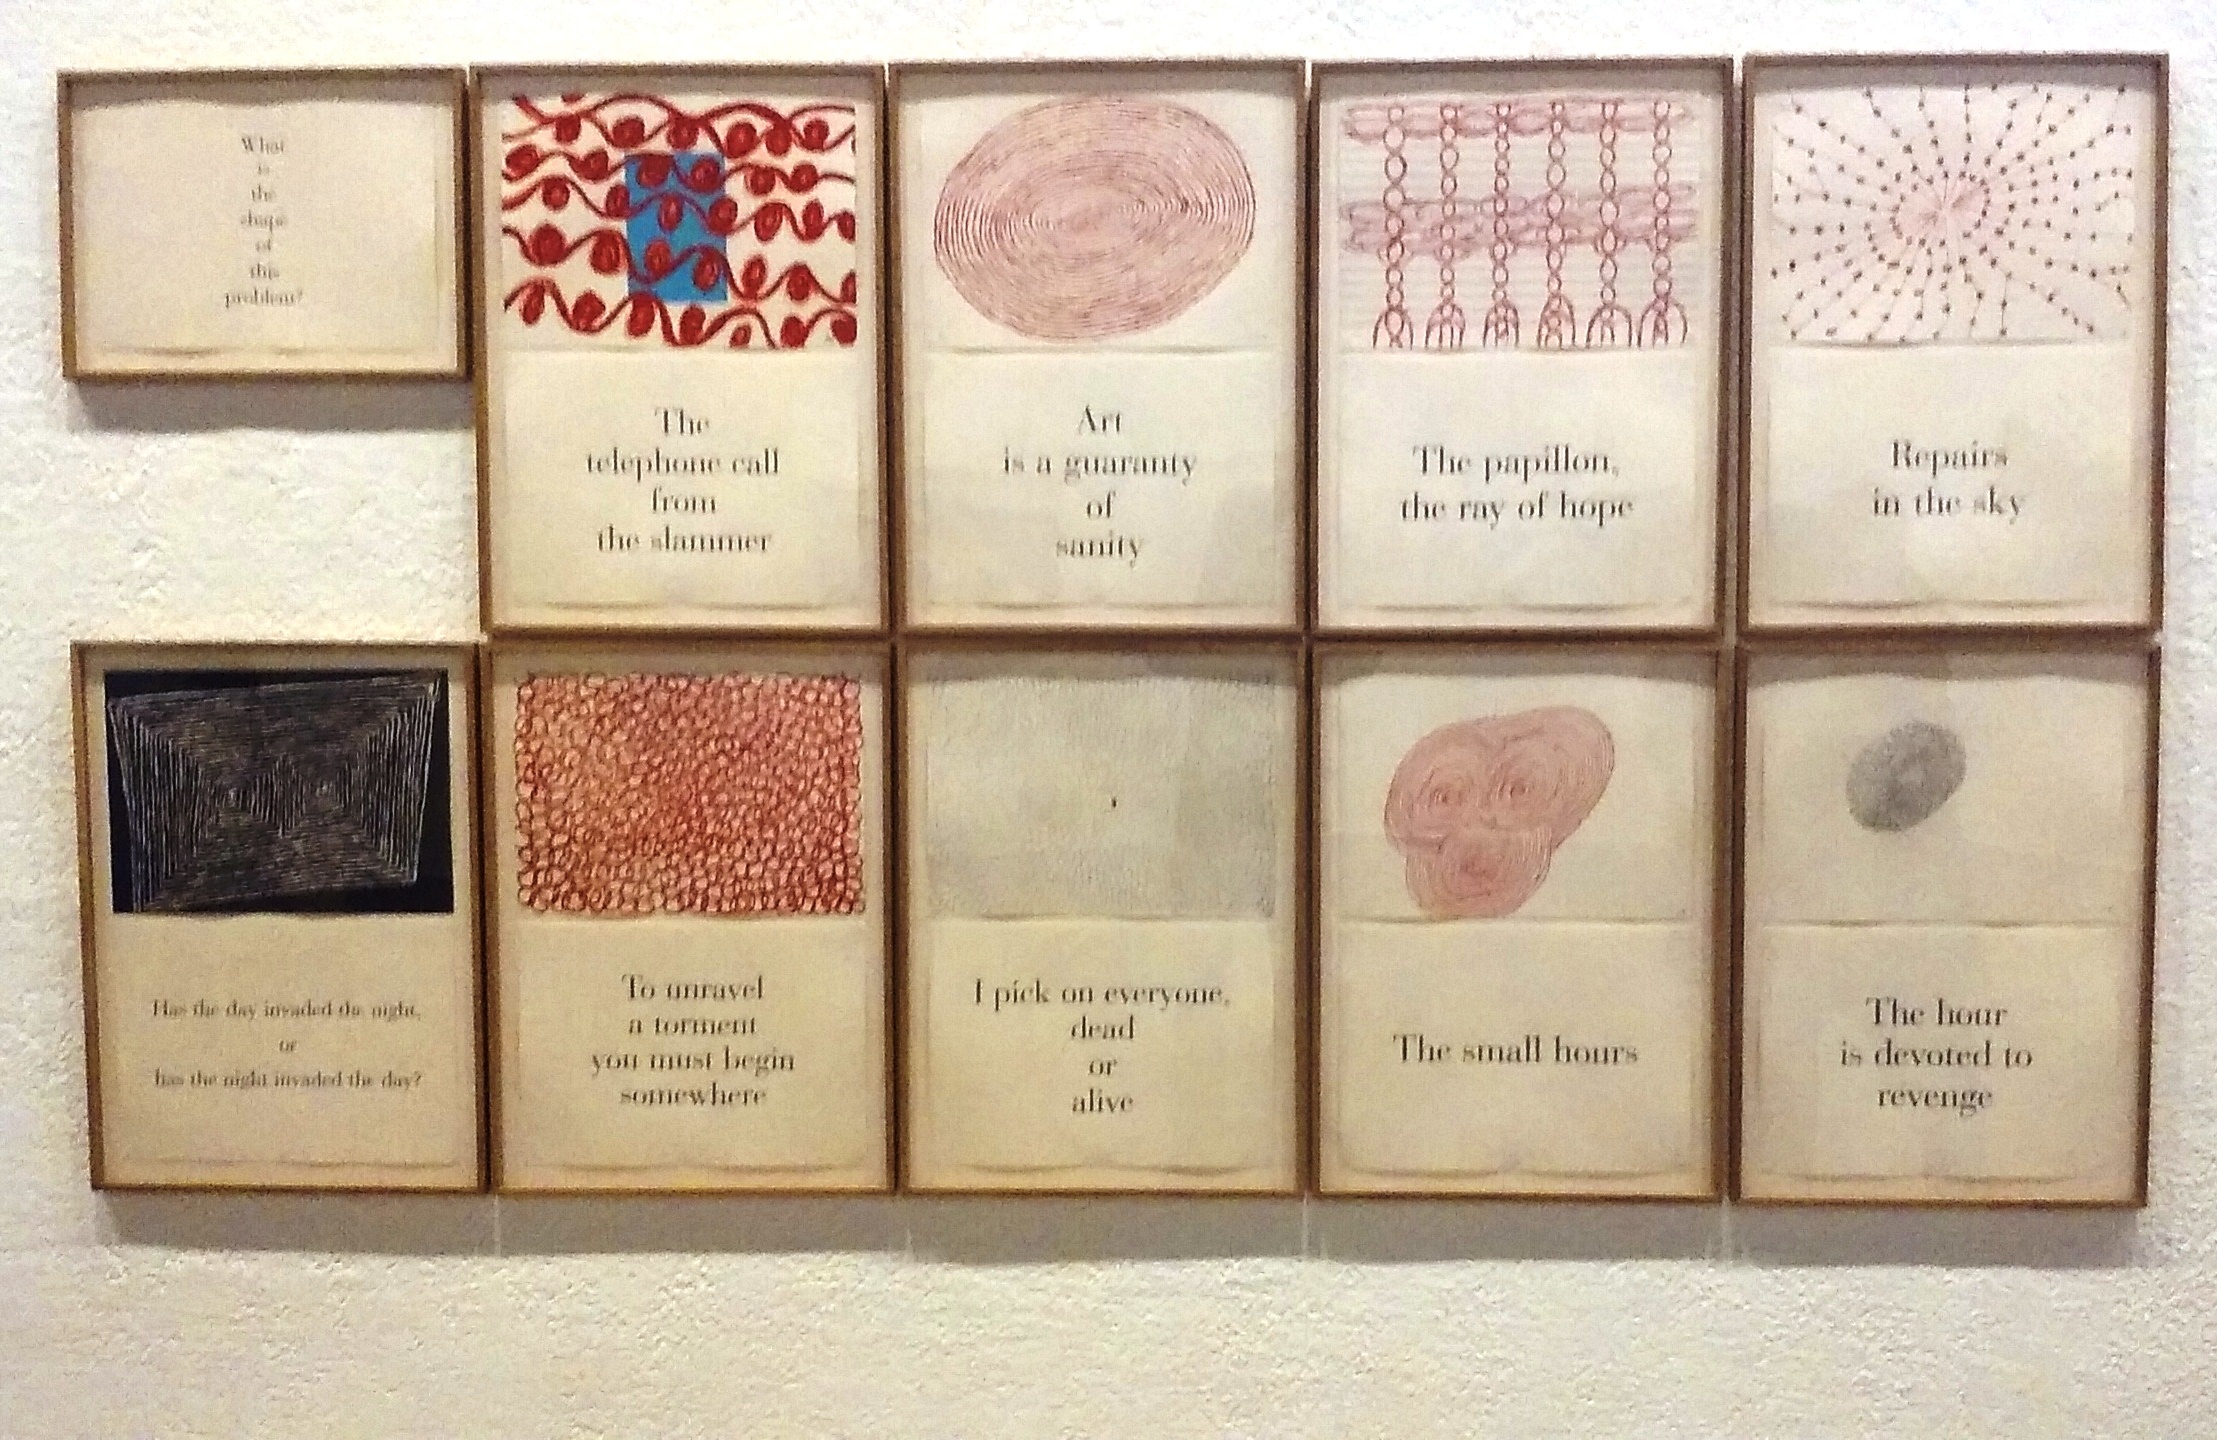 What
is
the
shape
of
this
problem?
The
telephone call
from
the slammer
Art
is a guaranty
of
sanity
The papillon,
the ray of hope
Repairs
in the sky
Has the day invaded the night,
or
has the night invaded the day?
To unravel
a torment
you must begin
somewhere
I pick on everyone,
dead
or
alive
The small hours
The hour
is devoted to
revenge